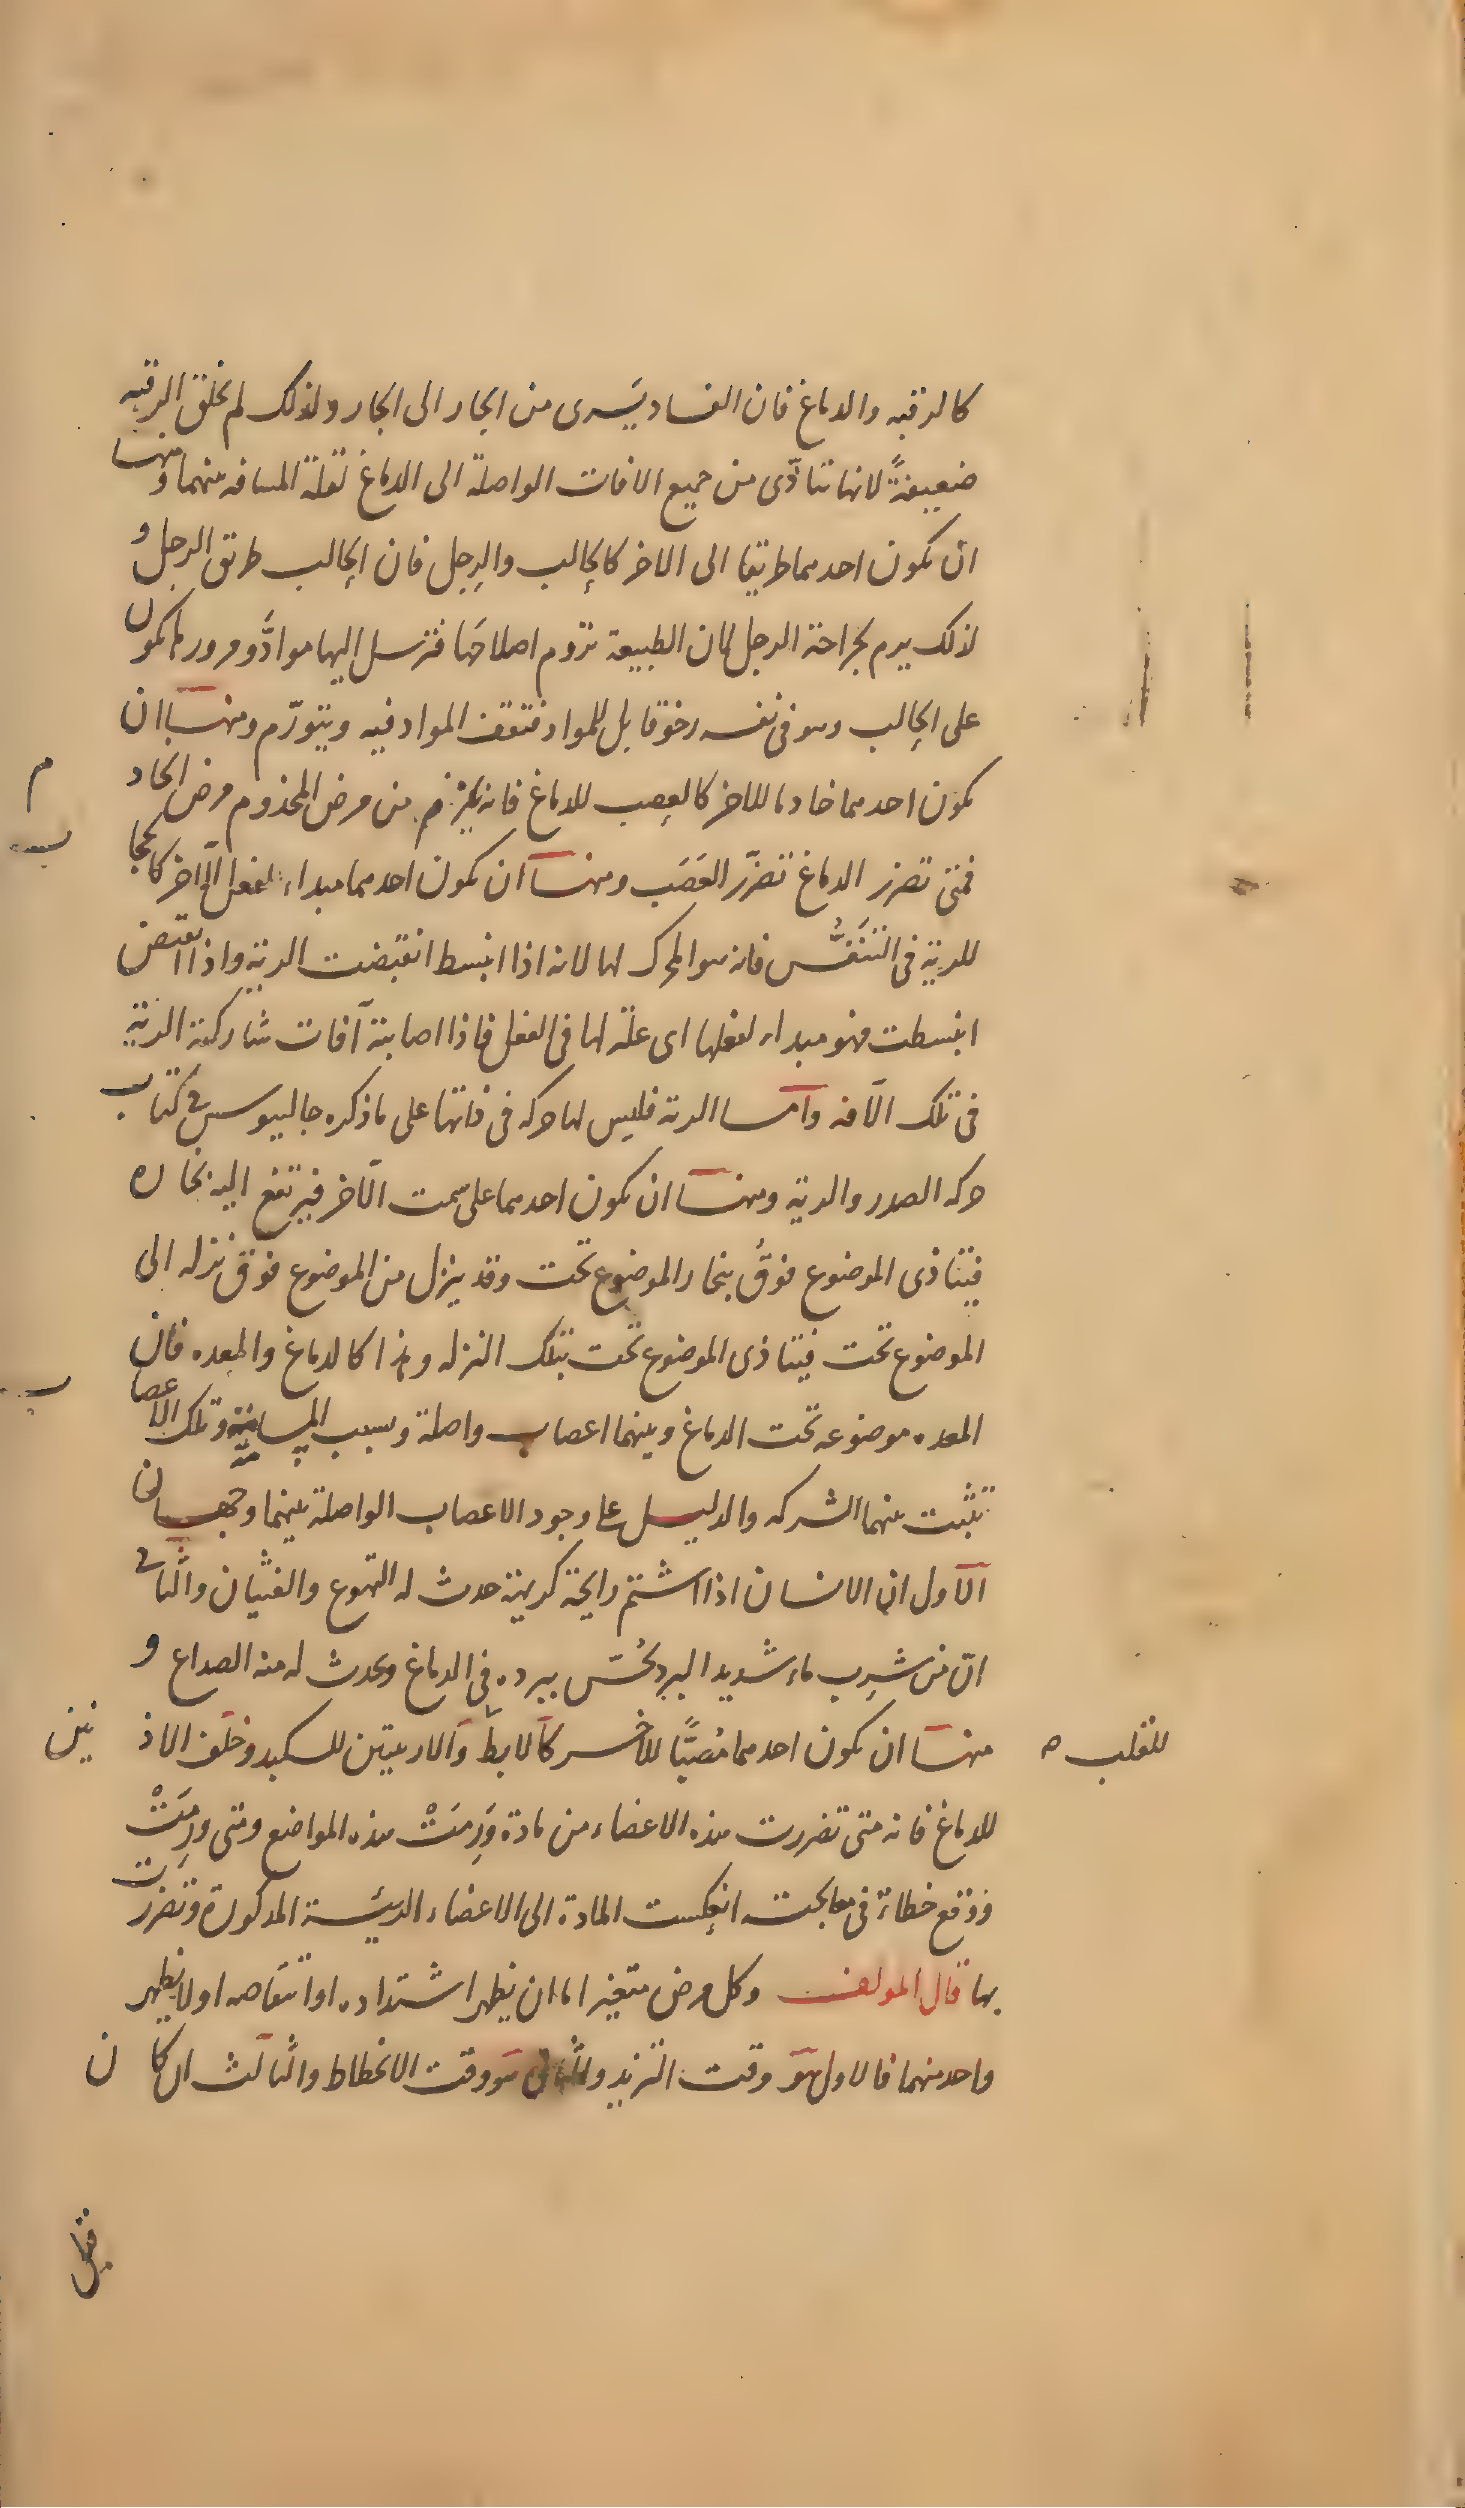 كالرقبه والدماغ فان الفساد يَسرى من الجار الى الجار ولذلك لم تخلق الرقبه
ضعيفةً لانها تتأذّى من جميع الافات الواصلة الى الدماغ لقلة المسافه بينهما ومنها
ان يكون احدهما طريقا الى الاخر كالحالب والرِجل فان الحالب طريق الرجل و
لذلك يرم بجراحة الرجل لان الطبيعة تروم اصلاحَها فترسل اليها موادَّ ومرورها يكون
على الحالب وهو فى نفسه رخو قابل للمواد فتقف المواد فيه ويتورّم ومنها ان
يكون احدهما خادما للاخر كالعصب للدماغ فانه يلزم من مرض المخدوم مرض الخادم
فمتى تضرر الدماغ تضرّر العَصَب ومنها ان يكون احدهما مبداء لفعل الآخر كالحجاب
للرية فى التنَفُّس فانه هو المحرك لها لانه اذا انبسط انقبضت الرية واذا انقبض
انبسطت فهو مبداء لفعلها اى علة لها فى الفعل فاذا اصابته آفات شاركته الرية
فى تلك الآفه وأما الرية فليس لها حركه فى ذاتها على ما ذكره جالينوس فى كتاب
حركه الصدر والرية ومنها ان يكون احدهما على سمت الآخر فيرتفع اليه بخاره
فيتاذى الموضوع فوقُ ببخار الموضوع تحت وقد ينزل من الموضوع فوق نزله الى
الموضوع تحت فيتاذى الموضوع تحت بتلك النزله وهذا كالدماغ والمعده فان
المعده موضوعه تحت الدماغ وبينهما اعصاب واصلة وبسبب المسامتة وتلك الاعصاب
تثبت بينهما الشركه والدليل على وجود الاعصاب الواصلة بينهما وجهان
الاول ان الانسان اذا اشتم رايحة كريهة حدث له التهوع والغثيان والثانى
ان من شرب ماء شديد البرد يُحسّ ببرده فى الدماغ ويحدث له منه الصداع و
منها ان يكون احدهما مُصبًّا للاخر كالابط للقلب والاربيتين للكبد وخلف الاذنين
للدماغ فانه متى تضررت هذه الاعضاء من مادة وَرِمَتْ هذه المواضع ومتى ورِمَتْ
ووقع خطاء فى معالجته انعكست المادة الى الاعضاء الرئيسة المذكورة وتضررت
بها قال المولف وكل مرض متغير اما ان يظهر اشتداده او انتقاصه او لا يظهر
واحد منهما فالاول هو وقت التزيد والثانى هو وقت الانحطاط والثالث ان كان
قبل